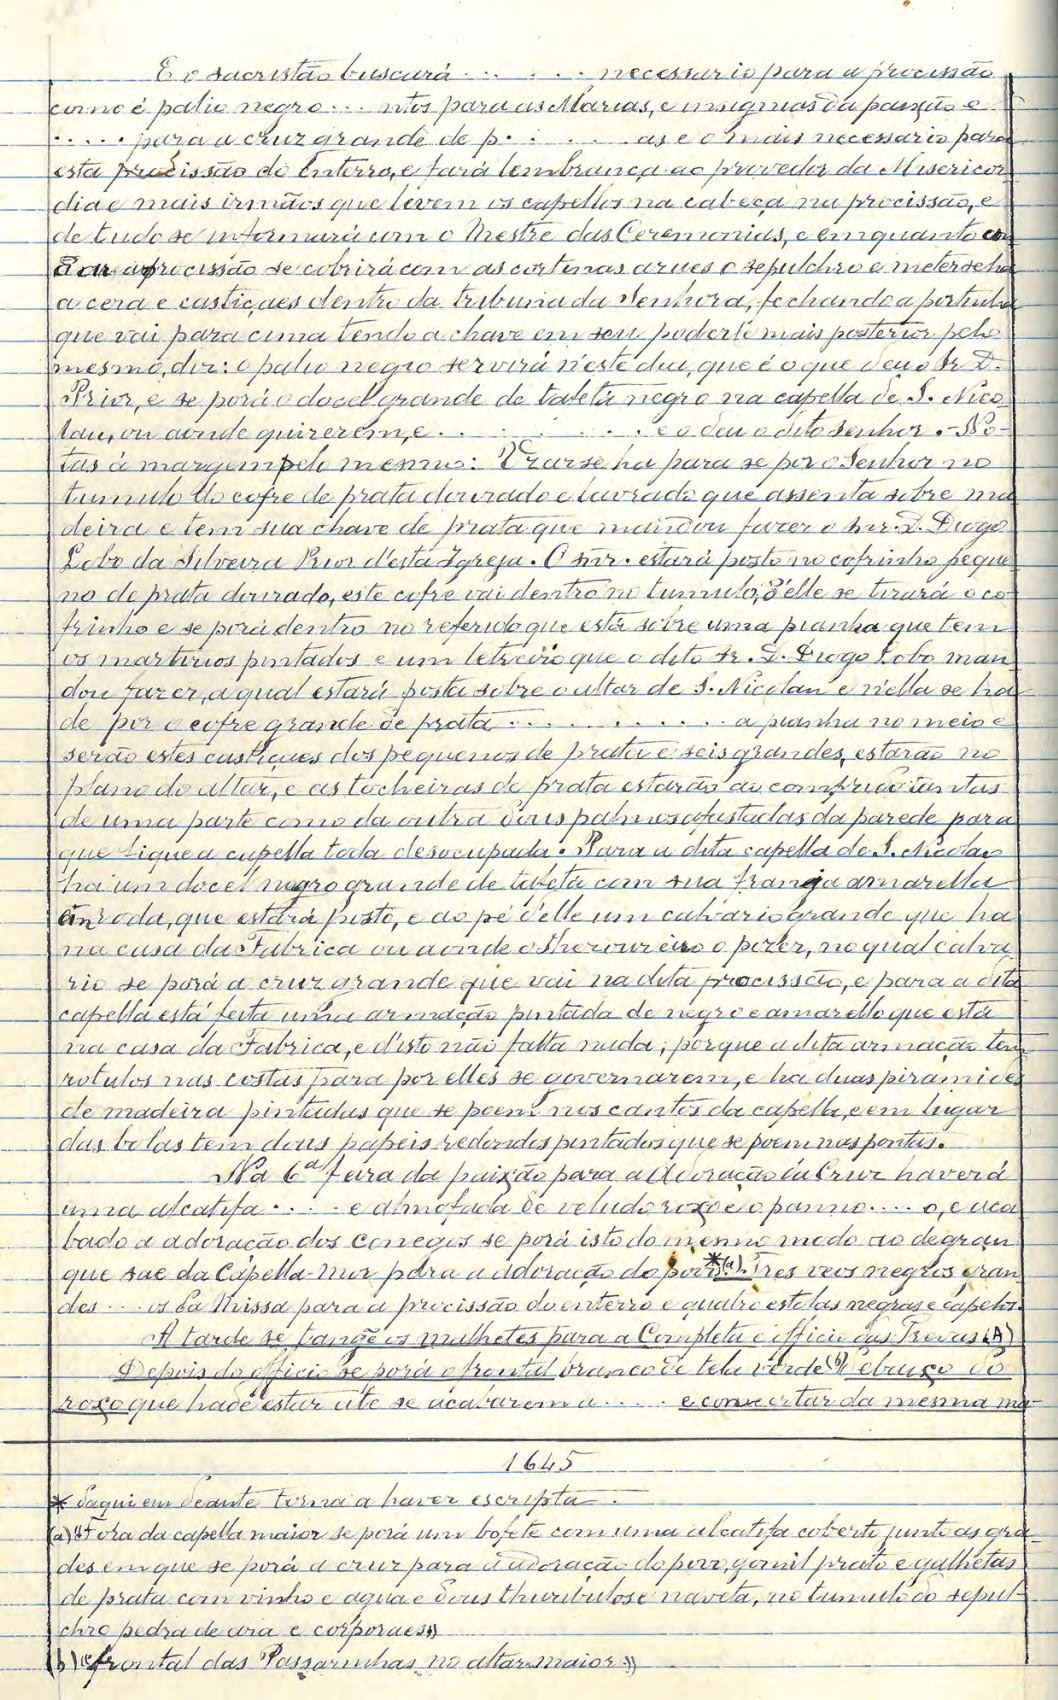 E o sacristão buscará . . . . . . necessario para a procissão
como é palio negro . . . ntos para as Marias, e insignias da paixão e
. . . . . para a cruz grande de p. . . . . . as e o mais necessario para
esta procissão do Enterro, e fará lembrança ao provedor da Misericor
dia e mais irmãos que levem os capellos na cabeça na procissão, e
de tudo se informará com o Mestre das Ceremonias, e emquanto
a procissão se cobrirá com as cortinas o sepulchro e meterseha
a cera e castiçaes dentro da tribuna da Senhora, fechando a portinha
que vai para cima tendo a chave em seu poder e mais posterior pelo
mesmo, diz: o palio negro servirá n'este dia, que é o que deu o Sr. D.
Prior, e se porá o docel grande de tafetá negro na capella de S. Nico
lau, ou aonde quizerem, e . . . . . . . . . e o deu o dito Senhor. - No-
tas á margem pelo mesmo: Tirarseha para se por o Senhor no
tumulo do cofre de prata dourado e lavrado que assenta sobre ma
deira e tem sua chave de prata que mandou fazer o Snr. D. Diogo
Lobo da Silveira Prior d'esta Igreja. O Snr. estará posto no cofrinho peque
no de prata dourado, este cofre vai dentro no tumulo, d'elle se tirará o co
frinho e se porá dentro no referido que está sobre uma pianha que tem
os martirios pintados e um letreiro que o dito Sr. D. Diogo Lobo man
dou fazer, a qual estará posta sobre o altar de S. Nicolau e n'ella se ha
de por o cofre grande de prata . . . . . . . . . . a pianha no meio e
serão estes castiçaes dos pequenos de prata e seis grandes, estarão no
plano do altar, e as tocheiras de prata estarão ao comprido tantas
de uma parte como da outra dous palmos afastadas da parede para
que fique a capella toda desocupada. Para a dita capella de S. Nicolao
ha um docel negro grande de tafetá com sua franja amarella
em roda, que estará posto, e ao pé d'elle um calvario grande que ha
na casa da Fabrica ou aonde o thezoureiro o pozer, no qual calva
rio se porá a cruz grande que vai na dita procissão, e para a dita
capella está feita uma armação pintada de negro e amarello que está
na casa da Fabrica, e d'isto não falta nada, porque a dita armação tem
rotulos nas costas para por elles se governarem, e ha duas piramides
de madeira pintadas que se poem nos cantos da capella, e em lugar
das bolas tem dous papeis redondos pintados que se poem nas pontas.
Na 6ª feira da paixão para a Adoração da Cruz haverá
uma alcatifa . . . . e almofada de veludo roxo e o panno . . . . o, e aca
bado a adoração dos conegos se porá isto do mesmo modo ao degrau
que sae da Capella-Mor para a adoração do povo *(a). Tres veos negros gran
des . . . os da Missa para a procissão do enterro e quatro estolas negras e capelos.
A tarde se tangē os malhetes para a Completa e officio das Trevas (A)
Depois do officio se porá o frontal branco de tela verde (b) debaixo do
roxo que hade estar até se acabarem a . . . . . e concertar da mesma ma-
1645
* Daqui em deante torna a haver escripta.
(a) "Fora da capella maior se porá um bofete com uma alcatifa coberto junto as gra
des em que se porá a cruz para a adoração do povo, gomil prato e galhetas
de prata com vinho e agua e dous thuribulos e naveta, no tumulo do sepul-
chro pedra de ara e corporaes"
(b) "frontal das Passarinhas no altar maior"